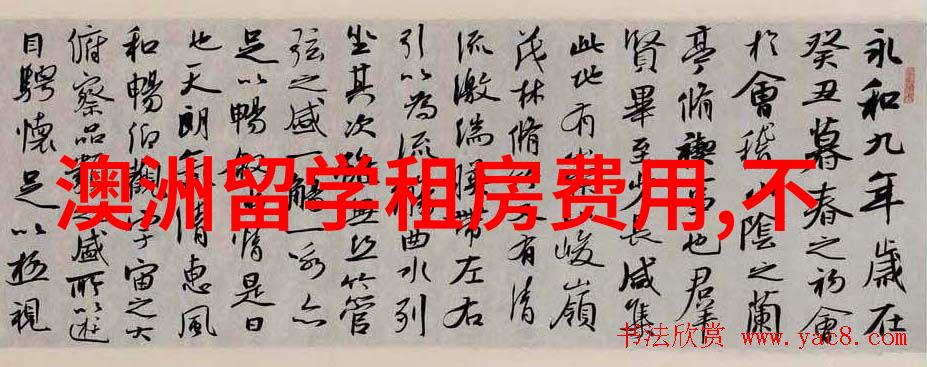 永和九年歲在
癸丑暮春之初會
於會稽山陰之蘭
亭脩禊事也羣
賢畢至少長咸集
此地有峻嶺
茂林脩又有清
流激湍映帶左右
引以為流曲水列
坐其次無絲竹管
弦之盛一觴一詠亦
足以暢情是日
也天朗氣清惠風
和暢仰觀宇宙之大
俯察品類之盛所以遊
目騁懷足以極視
澳洲留学租房费用,不
书法欣赏 www.yac8.com